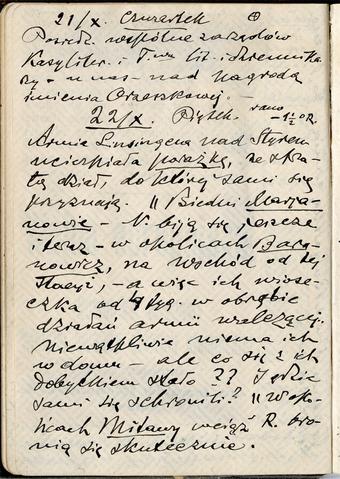 21/X. Czwartek ⊕
Posiedz. wspólne zarządów
Kasy liter. i T.wa lit. i dziennika-
rzy – u nas – nad nagrodą
imienia Orzeszkowej. –
22/X. Piątek. rano – 1½° R.
Armia Linsingena nad Styrem
ucierpiała porażkę, ze stra-
tą dział, do której sami się
przyznają. || Biedni Marja-
nowie – N. biją się jeszcze
i teraz – w okolicach Bara-
nowicz, na wschód od tej
stacyi, – a więc ich wiose-
czka od 4 tyg. w obrębie
działań armii walczącej.
Niewątpliwie niema ich
w domu – ale co się z ich
dobytkiem stało?? I gdzie
sami się schronili? || W oko-
licach Mitawy wciąż R. bro-
nią się skutecznie.